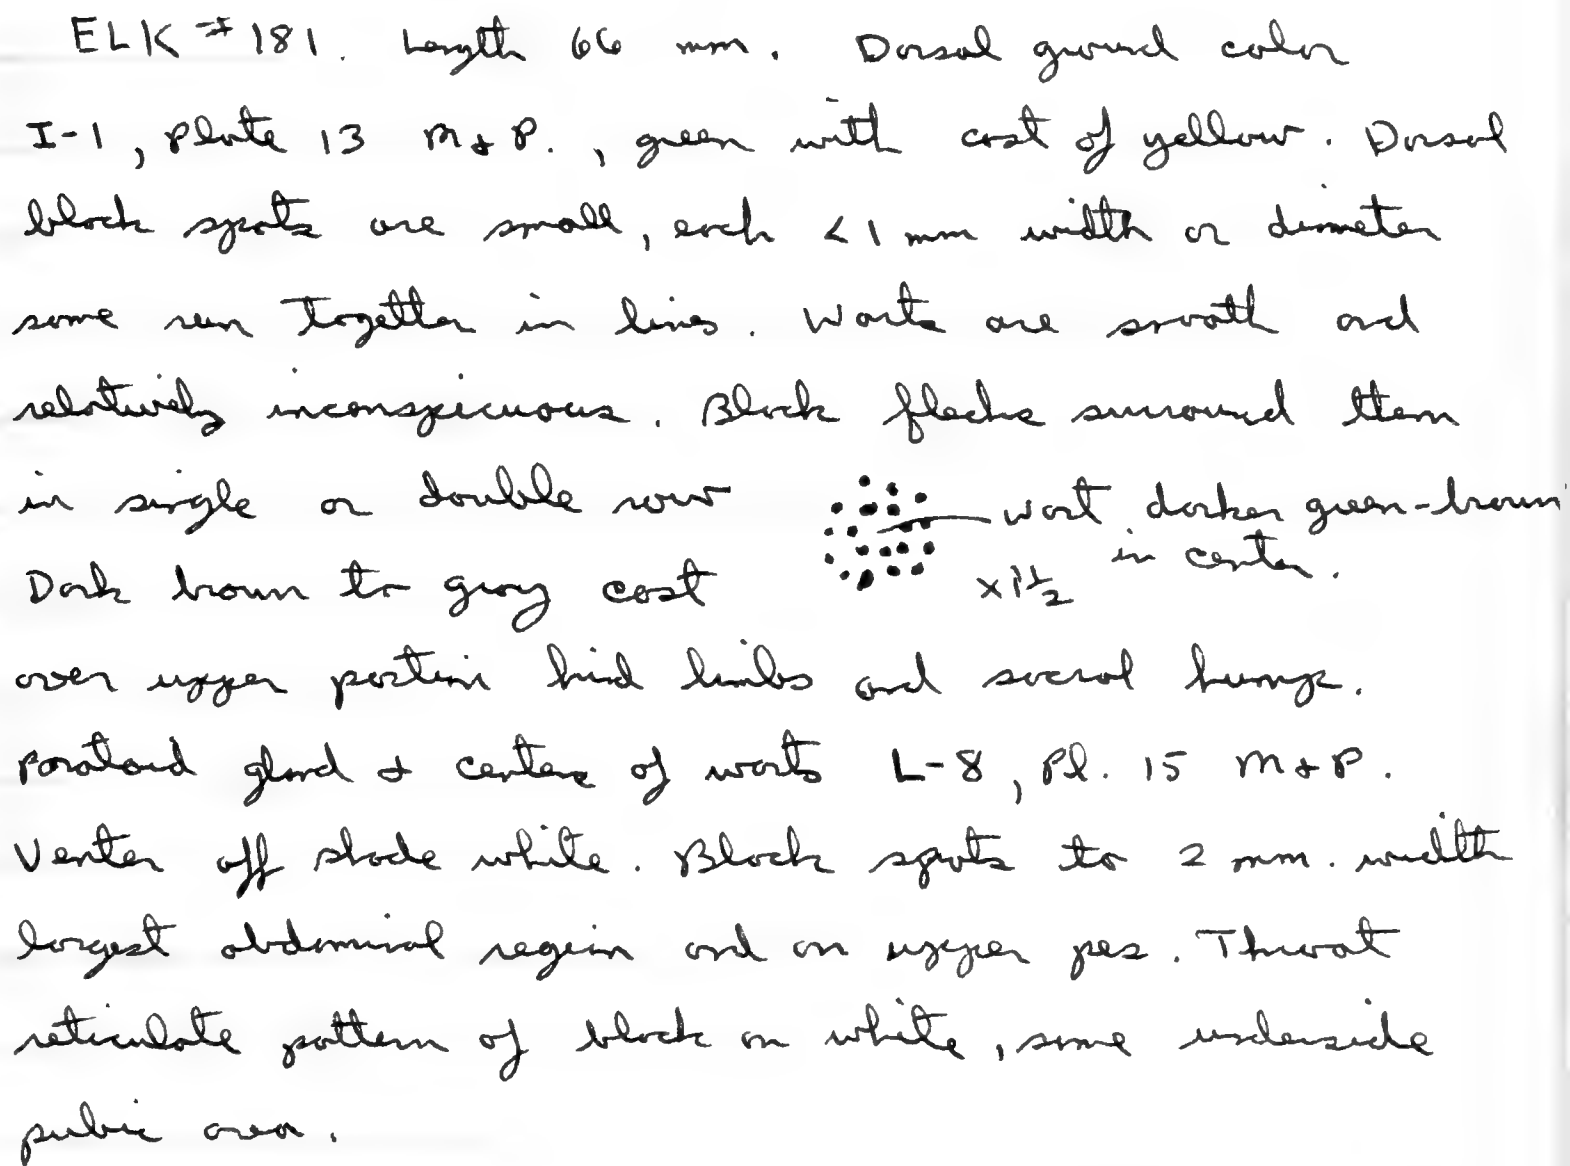 ELK #181. Length 66 mm. Dorsal ground color
I-1, Plate 13 M & P., green with cast of yellow. Dorsal
black spots are small, each < 1 mm width or diameter
some run together in lines. Warts are smooth and
relatively inconspicuous. Black flecks surround them
in single or double row
wart darker green-brown
in center.
x 1 1/2
Dark brown to gray cast
over upper portion hind limbs and sacral hump.
Paratoid gland & centers of warts L-8, Pl. 15 M & P.
Venter off shade white. Black spots to 2 mm. width
largest abdominal region and on upper pes. Throat
reticulate pattern of black on white, some underside
pubic area.